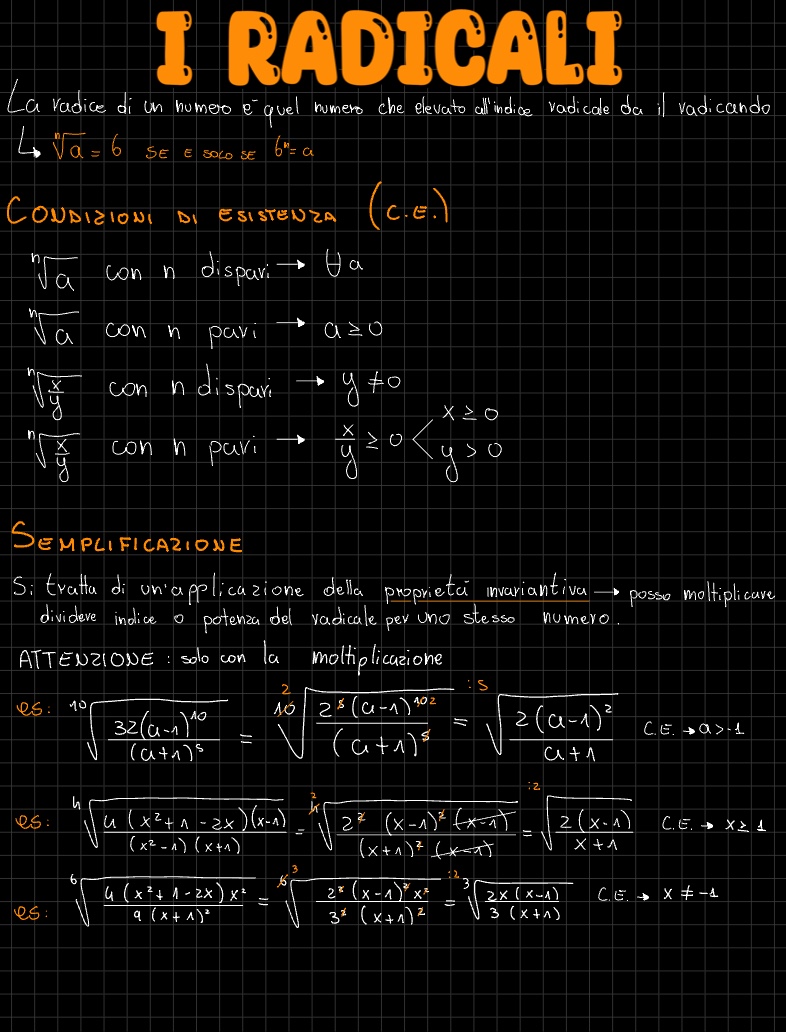 I RADICALI
La radice di un numero è quel numero che elevato all'indice radicale da il radicando
↳ ⁿ√a = b SE E SOLO SE bⁿ = a
CONDIZIONI DI ESISTENZA (C.E.)
ⁿ√a con n dispari → ∀ a
ⁿ√a con n pari → a ≥ 0
ⁿ√(x/y) con n dispari → y ≠ 0
ⁿ√(x/y) con n pari → x/y ≥ 0 < x ≥ 0 y > 0
SEMPLIFICAZIONE
Si tratta di un'applicazione della proprietà invariantiva → posso moltiplicare
dividere indice o potenza del radicale per uno stesso numero.
ATTENZIONE : solo con la moltiplicazione
es: ¹⁰√(32(a-1)¹⁰/(a+1)⁵) = 2 ¹⁰√(2⁵(a-1)¹⁰ ²/(a+1)⁵) = :5 √(2(a-1)²/a+1) C.E. → a>-1
es: ⁴√(4(x²+1-2x)(x-1)/(x²-1)(x+1)) = 2 ⁴√(2² (x-1)² (x-1)/(x+1)² (x-1)) = :2 √(2(x-1)/x+1) C.E. → x ≥ 1
es: ⁶√(4(x²+1-2x)x²/9(x+1)²) = ⁶ ³√(2²(x-1)²x²/3²(x+1)²) = :2 ³√(2x(x-1)/3(x+1)) C.E. → x ≠ -1